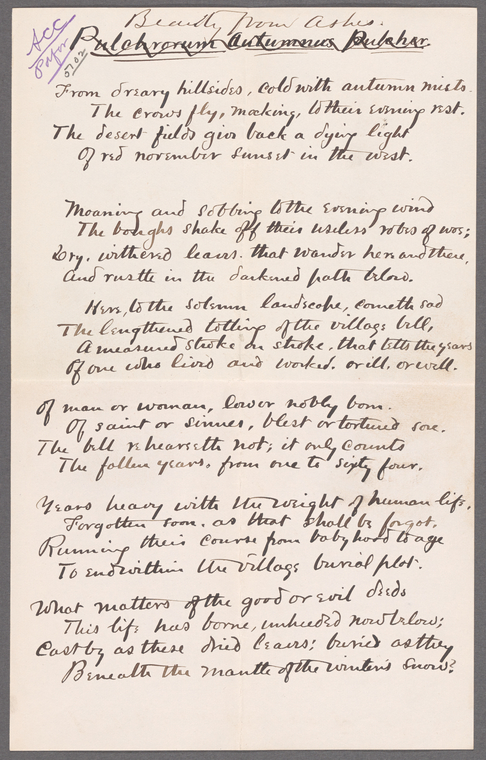 Beauty from Ashes.
Pulchrorum Autumnus Pulcher
Acc
Paper
5702
From dreary hillsides, cold with autumn mists
The crows fly, mocking, to their evening rest.
The desert fields give back a dying light
Of red november sunset in the west.
Moaning and sobbing to the evening wind
The boughs shake off their useless robes of woe;
Dry, withered leaves. that wander here and there,
And rustle in the darkened path below.
Here, to the solemn landscape, cometh sad
The lengthened tolling of the village bell,
A measured stroke on stroke, that tells the years
Of one who lived and worked. or ill, or well.
Of man or woman, low or nobly born.
Of saint or sinner, blest or tortured sore.
The bell rehearseth not; it only counts
The fallen years. from one to sixty four.
Years heavy with the weight of human life,
Forgotten soon. as that shall be forgot,
Running their course from babyhood to age
To end within the village burial plot.
What matters of the good or evil deeds
This life has borne, unheeded now below;
Cast by as these dried leaves; buried as they
Beneath the mantle of the winter's snow?